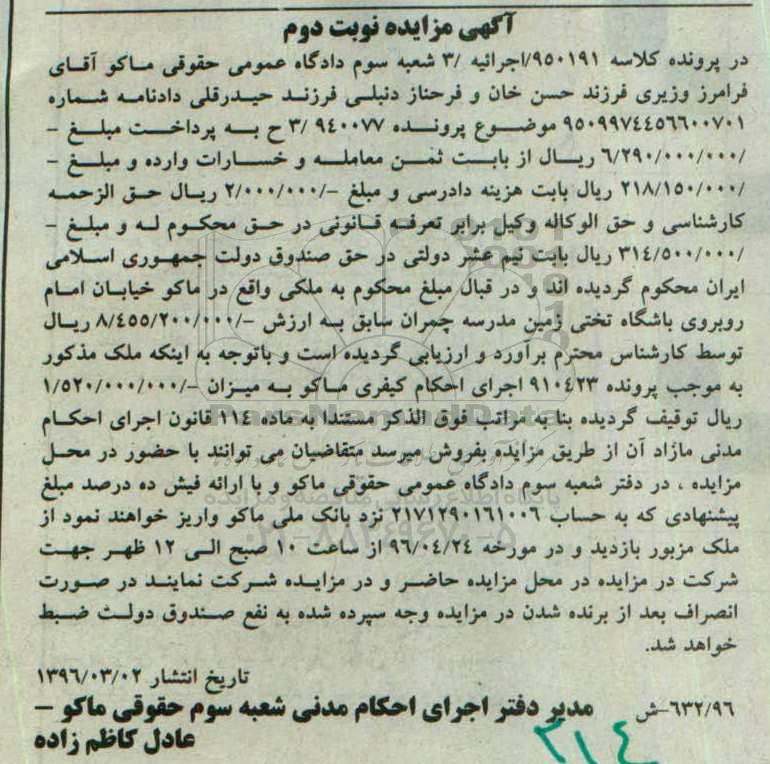 آگهی مزایده نوبت دوم
در پرونده کلاسه ۹۵۰۱۹۱/اجرائیه /۳ شعبه سوم دادگاه عمومی حقوقی ماکو آقای
فرامرز وزیری فرزند حسن خان و فرحناز دنبلی فرزند حیدرقلی دادنامه شماره
۹۵۰۹۹۷۴۴۵۶۶۰۰۷۰۱ موضوع پرونده ۹۴۰۰۷۷ /۳ ح به پرداخت مبلغ –
/۶/۲۹۰/۰۰۰/۰۰۰ ریال از بابت ثمن معامله و خسارات وارده و مبلغ –
/۲۱۸/۱۵۰/۰۰۰ ریال بابت هزینه دادرسی و مبلغ –/۲/۰۰۰/۰۰۰ ریال حق الزحمه
کارشناسی و حق الوکاله وکیل برابر تعرفه قانونی در حق محکوم له و مبلغ –
/۳۱۴/۵۰۰/۰۰۰ ریال بابت نیم عشر دولتی در حق صندوق دولت جمهوری اسلامی
ایران محکوم گردیده اند و در قبال مبلغ محکوم به ملکی واقع در ماکو خیابان امام
روبروی باشگاه تختی زمین مدرسه چمران سابق به ارزش –/۸/۴۵۵/۲۰۰/۰۰۰ ریال
توسط کارشناس محترم برآورد و ارزیابی گردیده است و باتوجه به اینکه ملک مذکور
به موجب پرونده ۹۱۰۴۲۳ اجرای احکام کیفری ماکو به میزان –/۱/۵۲۰/۰۰۰/۰۰۰
ریال توقیف گردیده بنا به مراتب فوق الذکر مستندا به ماده ۱۱۴ قانون اجرای احکام
مدنی مازاد آن از طریق مزایده بفروش میرسد متقاضیان می توانند با حضور در محل
مزایده ، در دفتر شعبه سوم دادگاه عمومی حقوقی ماکو و با ارائه فیش ده درصد مبلغ
پیشنهادی که به حساب ۲۱۷۱۲۹۰۱۶۱۰۰۶ نزد بانک ملی ماکو واریز خواهند نمود از
ملک مزبور بازدید و در مورخه ۹۶/۰۴/۲۴ از ساعت ۱۰ صبح الی ۱۲ ظهر جهت
شرکت در مزایده در محل مزایده حاضر و در مزایده شرکت نمایند در صورت
انصراف بعد از برنده شدن در مزایده وجه سپرده شده به نفع صندوق دولت ضبط
خواهد شد.
تاریخ انتشار ۱۳۹۶/۰۳/۰۲
۶۳۲/۹۶–ش مدیر دفتر اجرای احکام مدنی شعبه سوم حقوقی ماکو –
عادل کاظم زاده
۲۱۴
ParsNamadData
پایگاه اطلاع رسانی مناقصه و مزایده